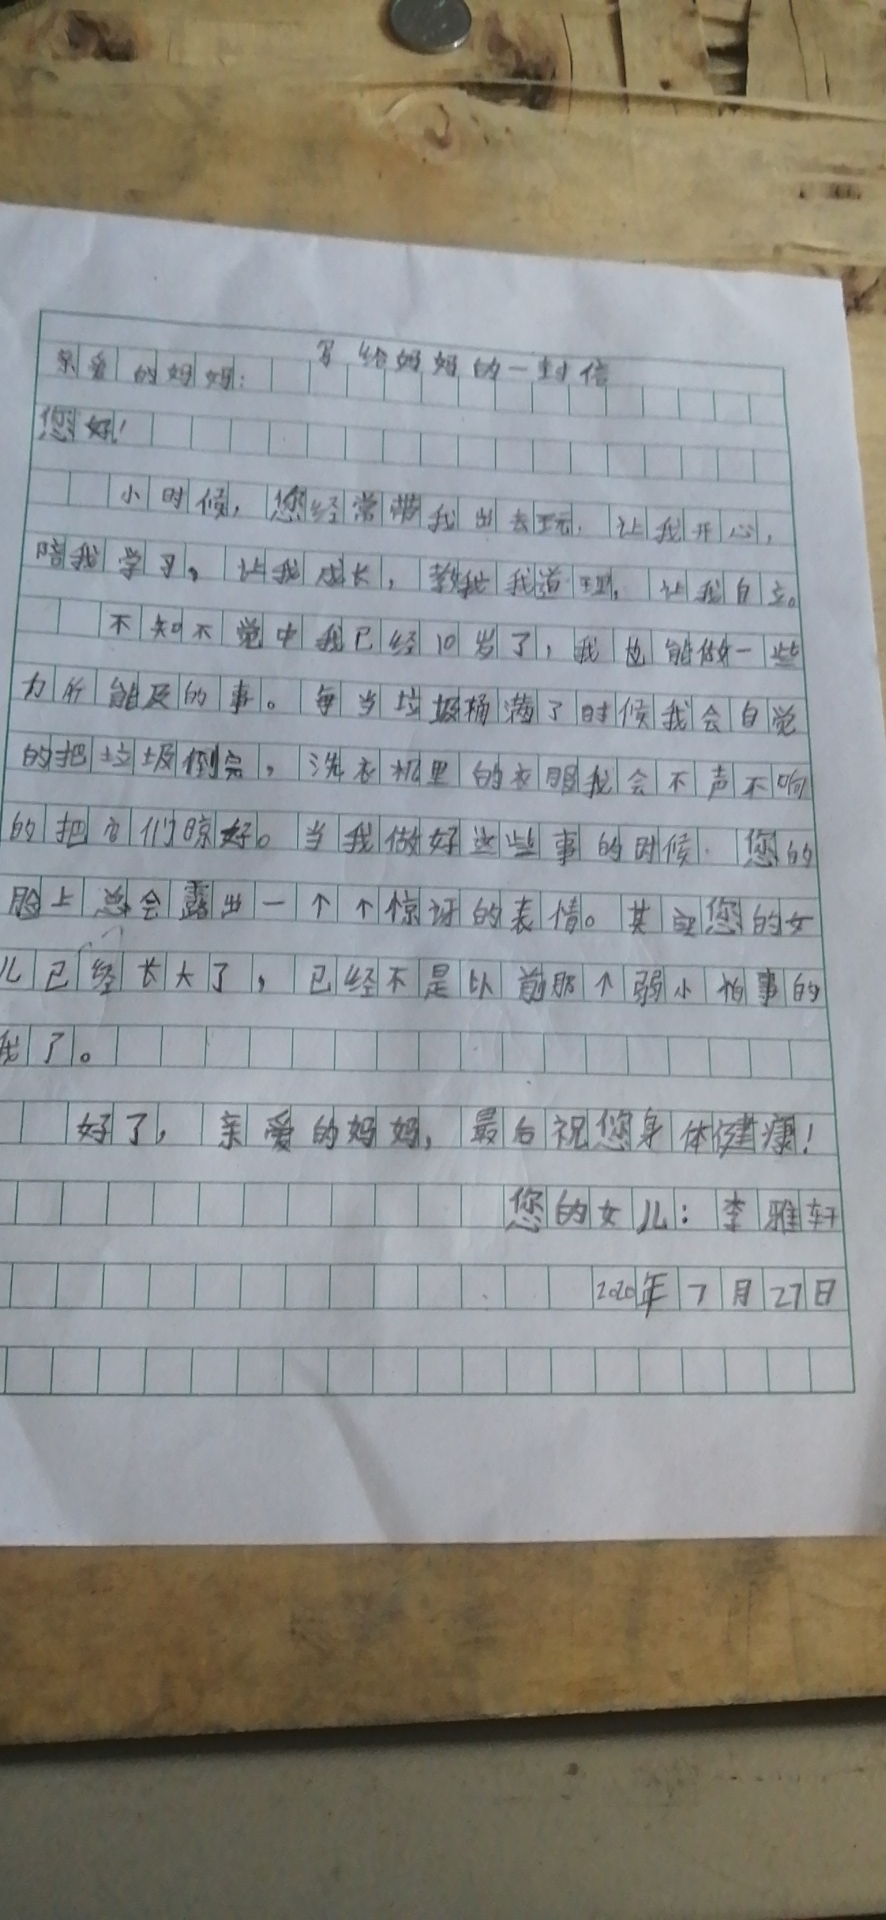 写给妈妈的一封信
亲爱的妈妈:
您好!
小时候,您经常带我出去玩,让我开心,
陪我学习,让我成长,教我道理,让我自立。
不知不觉中我已经10岁了,我也能做一些
力所能及的事。每当垃圾桶满了时候我会自觉
的把垃圾倒完,洗衣机里的衣服我会不声不响
的把它们晾好。当我做好这些事的时候.您的
脸上总会露出一个个惊讶的表情。其实您的女
儿已经长大了,已经不是以前那个弱小怕事的
我了。
好了,亲爱的妈妈,最后祝您身体健康!
您的女儿:李雅轩
2020年7月27日